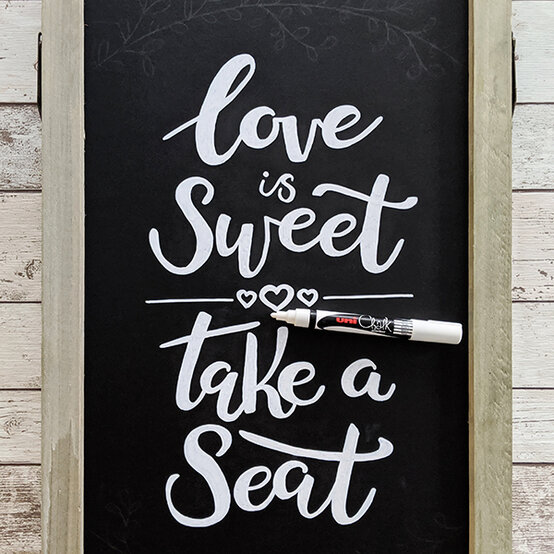 love
is
Sweet
take a
Seat
uni Chalk